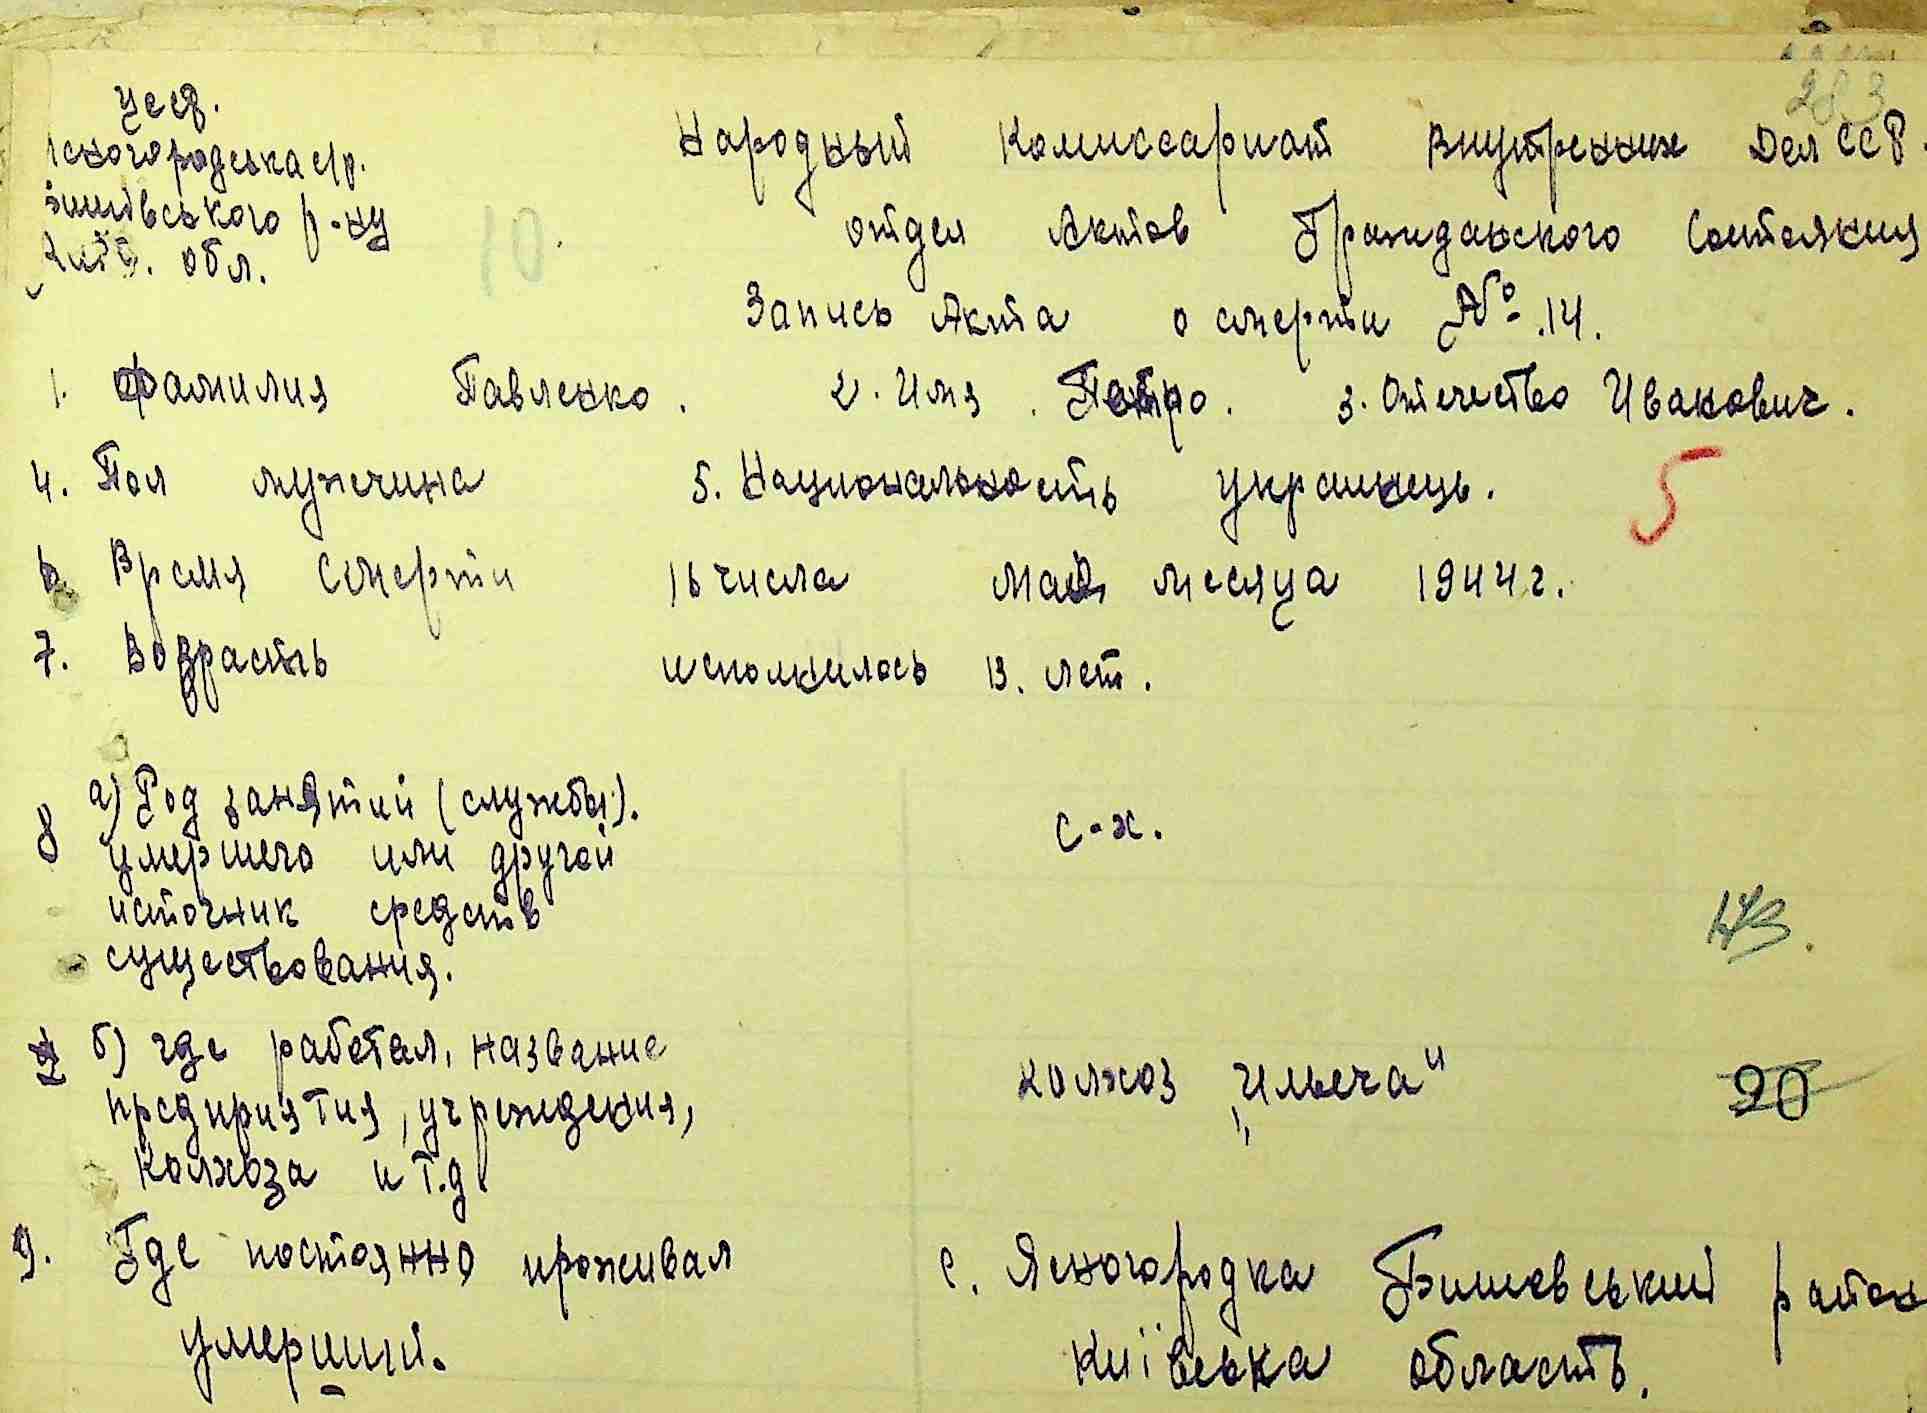 УССР.
Ясногородська с/р.
Бишівського р-ну
Київ. обл.
283
10
Народный Комиссариат Внутренних Дел ССР.
отдел Актов Гражданского Состояния
Запись Акта о смерти № 14.
1. Фамилия Павленко. 2. Имя. Петро. 3. Отечество Иванович.
4. Пол мужчина 5. Национальность украинець.
5
6 Время смерти 16 числа мая месяца 1944 г.
7. Возрасть исполнилось 13. лет.
8 а) Род занятий (службы). с-х.
умершего или другой
источник средств
существования.
б) где работал, название колхоз „Ильича"
предприятия, учреждения, 20
колхоза и т.д
9. Где постоянно проживал с. Ясногородка Бишевський район
умерший. Київська область.